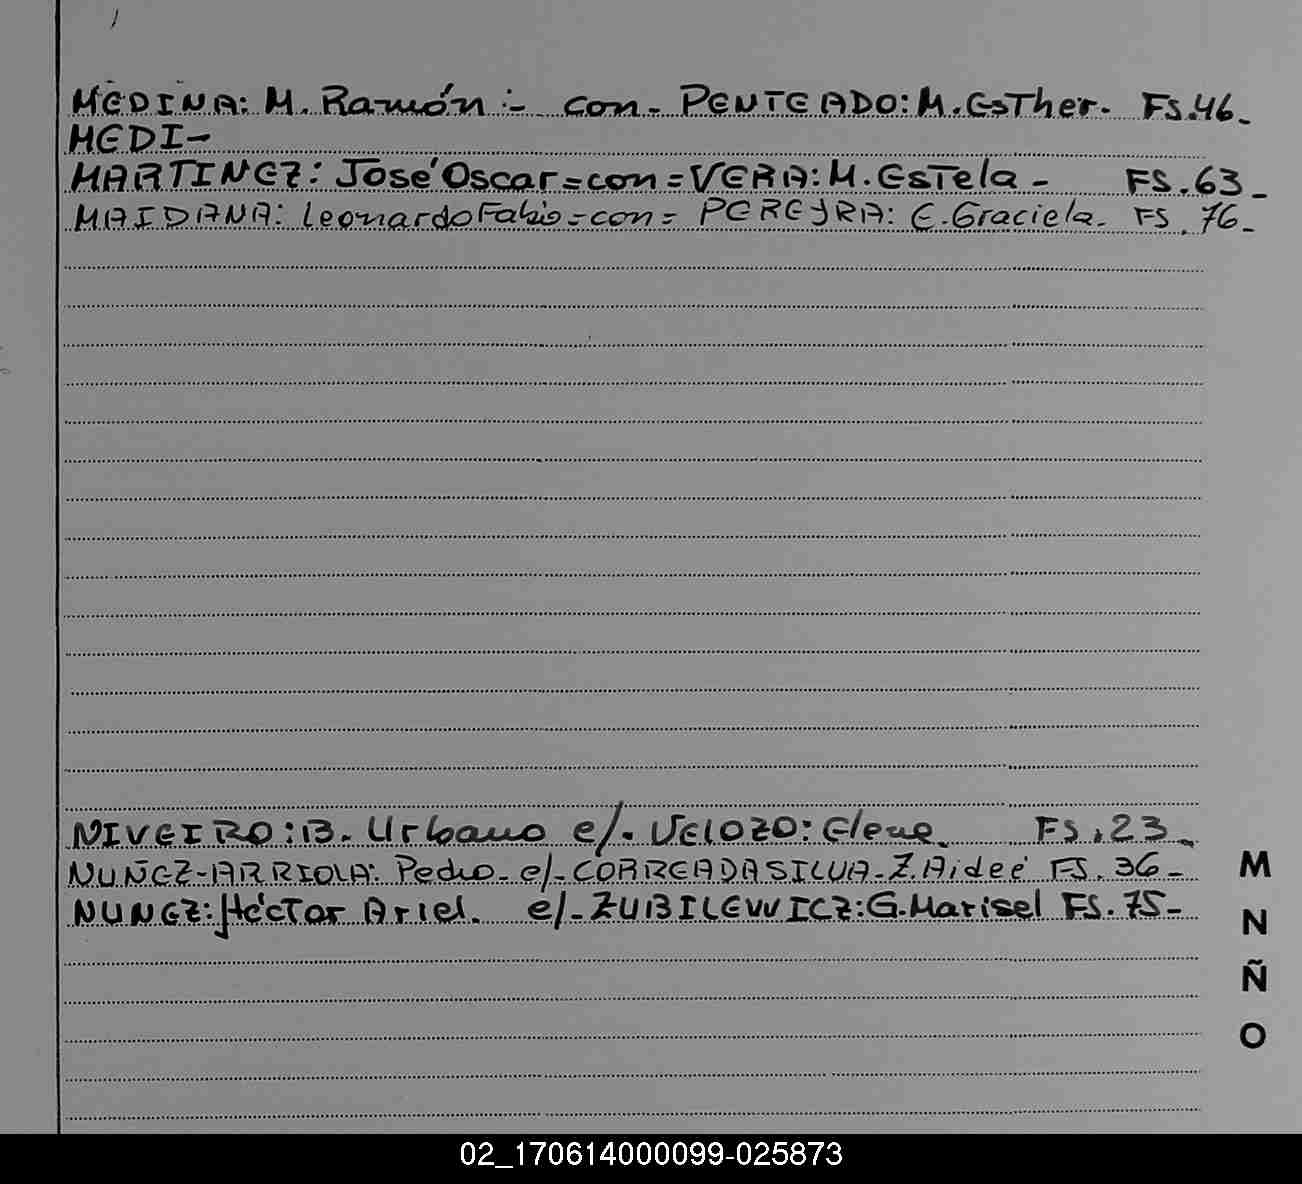 MEDINA: M. Ramón :- con - PENTEADO: M. EsTher. FS. 46.-
MEDI-
MARTINEZ: José Oscar = con = VERA: M. EsTela - FS. 63 -
MAIDANA: Leonardo Fabio = con = PEREYRA: E. Graciela. FS. 76 -
NIVEIRO: B. Urbano e/. VELOZO: Elena. FS. 23 -
NUÑEZ-ARRIOLA: Pedro - e/- CORREADASILVA - Z. Aideé FS. 36 -
NUNEZ: HécTor Ariel. e/- ZUBILEWICZ: G. Marisel FS. 75 -
M
N
Ñ
O
02_170614000099-025873